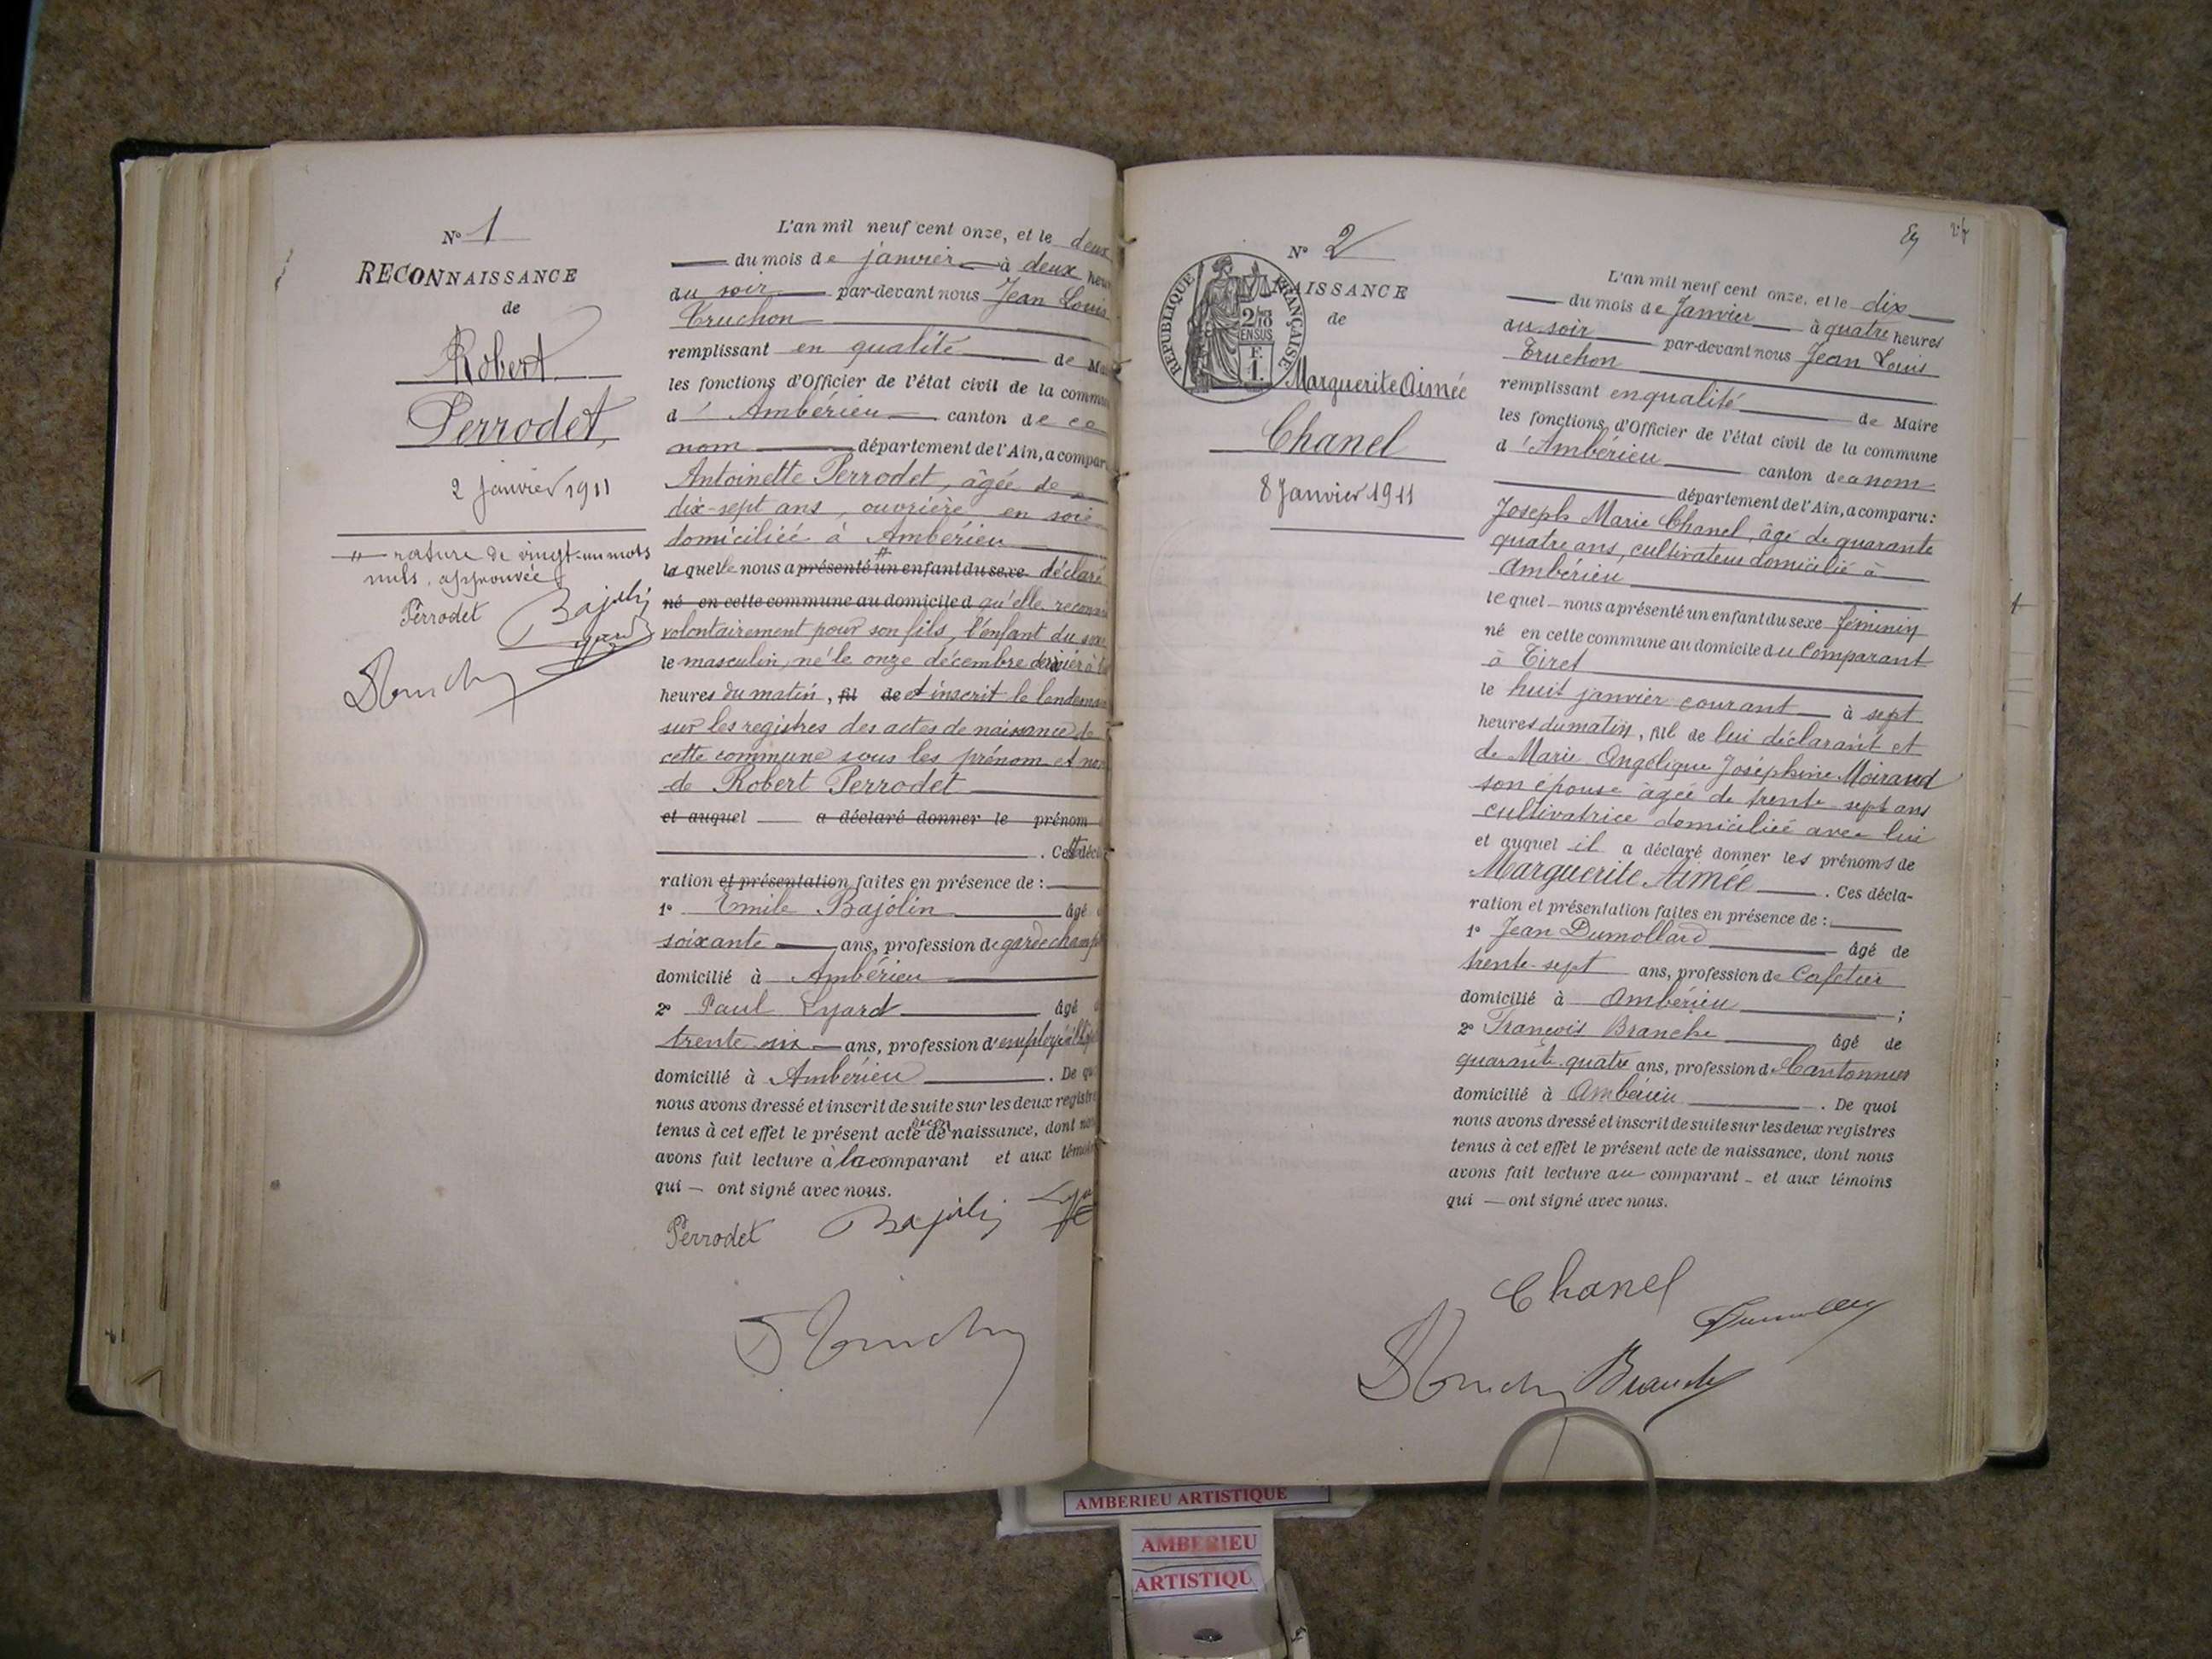 N° 1
RECONNAISSANCE
de
Robert
Perrodet
2 janvier 1911
" rature de vingt-un mots
nuls, approuvée
Perrodet Bajolin
L'an mil neuf cent onze, et le deux
du mois de janvier à deux
du soir par-devant nous Jean Louis
Truchon
remplissant en qualité de
les fonctions d'Officier de l'état civil de la
d' Ambérieu canton de ce
nom département de l'Ain, a
Antoinette Perrodet, âgée de
dix-sept ans, ouvrière en soie
domiciliée à Ambérieu
la quelle nous a présenté un enfant du sexe déclaré
né en cette commune au domicile d qu'elle
volontairement pour son fils, l'enfant du sexe
le masculin, né le onze décembre dernier à
heures du matin, fil de et inscrit le
sur les registres des actes de naissance de
cette commune sous les prénom et nom
de Robert Perrodet
et auquel a déclaré donner le prénom
ration et présentation faites en présence de :
1° Emile Bajolin âgé
soixante ans, profession de garde
domicilié à Ambérieu
2° Paul Lyard âgé
trente six ans, profession d'employé
domicilié à Ambérieu. De
nous avons dressé et inscrit de suite sur les deux
tenus à cet effet le présent acte de naissance, dont
avons fait lecture à la comparant et aux
qui — ont signé avec nous.
Perrodet Bajolin
N° 2
AISSANCE
de
RÉPUBLIQUE FRANÇAISE
2/10
EN SUS
Marguerite Aimée
Chanel
8 Janvier 1911
L'an mil neuf cent onze, et le dix
du mois de Janvier à quatre heures
du soir par-devant nous Jean Louis
Truchon
remplissant en qualité de Maire
les fonctions d'Officier de l'état civil de la commune
d'Ambérieu canton de ce nom
département de l'Ain, a comparu :
Joseph Marie Chanel, âgé de quarante
quatre ans, cultivateur domicilié à
Ambérieu
le quel nous a présenté un enfant du sexe féminin
né en cette commune au domicile du Comparant
à Tiret
le huit janvier courant à sept
heures du matin, fil de lui déclarant et
de Marie Angélique Joséphine Moiraud
son épouse âgée de trente-sept ans
cultivatrice domiciliée avec lui
et auquel il a déclaré donner les prénoms de
Marguerite Aimée. Ces décla-
ration et présentation faites en présence de :
1° Jean Dumollard âgé de
trente-sept ans, profession de Cafetier
domicilié à Ambérieu ;
2° François Branche âgé de
quarante quatre ans, profession de Cantonnier
domicilié à Ambérieu. De quoi
nous avons dressé et inscrit de suite sur les deux registres
tenus à cet effet le présent acte de naissance, dont nous
avons fait lecture au comparant — et aux témoins
qui — ont signé avec nous.
Chanel
Branche
AMBERIEU ARTISTIQUE
AMBERIEU
ARTISTIQU